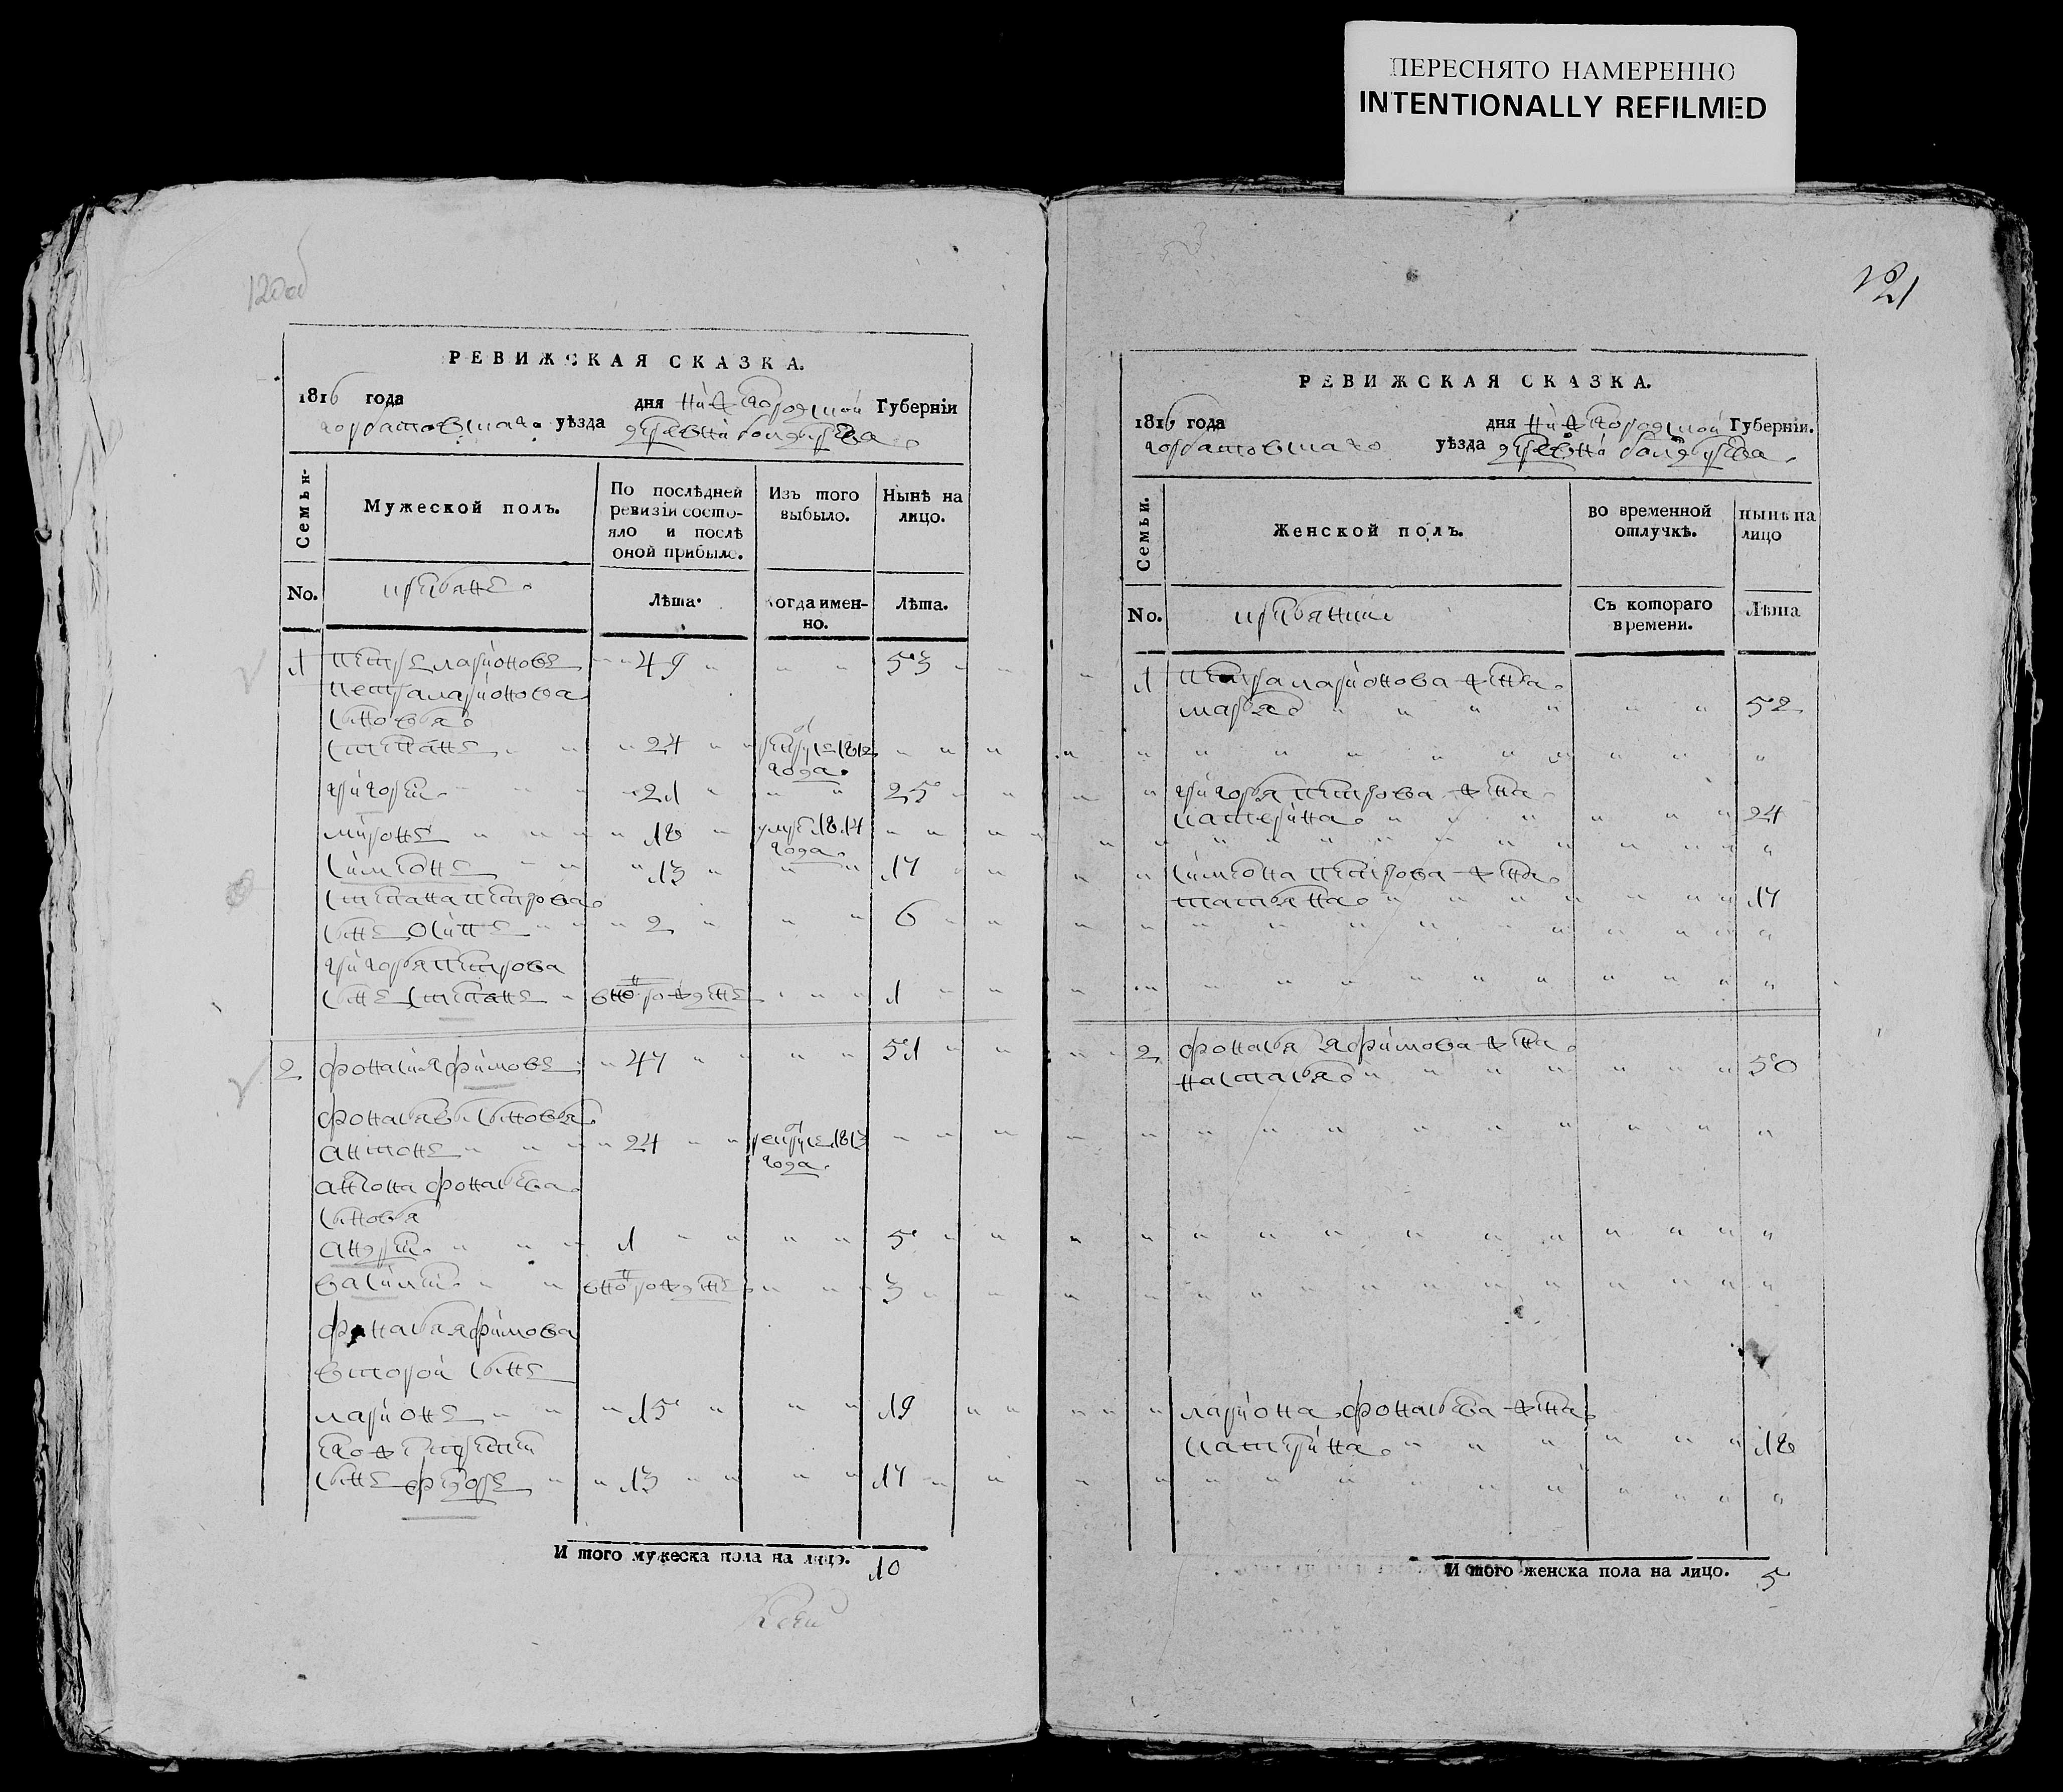 ПЕРЕСНЯТО НАМЕРЕННО
INTENTIONALLY REFILMED
120об
РЕВИЖСКАЯ СКАЗКА.
1816 года дня нижегородской Губерніи
горбатовскаго уѣзда деревни
Семьи
Мужеской полъ.
По послѣдней ревизіи состояло и послѣ оной прибыло.
Изъ того выбыло.
Нынѣ на лицо.
No.
Лѣта.
Когда именно.
Лѣта.
1 петръ ларионовъ 49 53
петра ларионова
сыновья
степанъ 24 рекрутъ 1812
года
григорей 21 25
миронъ 18 умре 1814
года
симеонъ 13 17
степана петрова
сынъ осипъ 2 6
григорья петрова
сынъ степанъ вновь рожденъ 1
2 фонасий яфимовъ 47 51
фонасьевы сыновья
антонъ 24 рекрутъ 1813
года
антона фонасьева
сыновья
андрей 1 5
василей вновь рожденъ 3
фонасья яфимова
второй сынъ
ларионъ 15 19
его же третей
сынъ федоръ 13 17
И того мужеска пола на лицо. 10
121
РЕВИЖСКАЯ СКАЗКА.
1816 года дня нижегородской Губерніи.
горбатовскаго уѣзда деревни
Семьи.
Женской полъ.
во временной отлучкѣ.
нынѣ на лицо
No.
Съ котораго времени.
Лѣта
1 петра ларионова жена
марья 52
григорья петрова жена
катерина 24
симеона петрова жена
татьяна 17
2 фонасья яфимова жена
настасья 50
лариона фонасьева жена
катерина 18
И того женска пола на лицо. 5